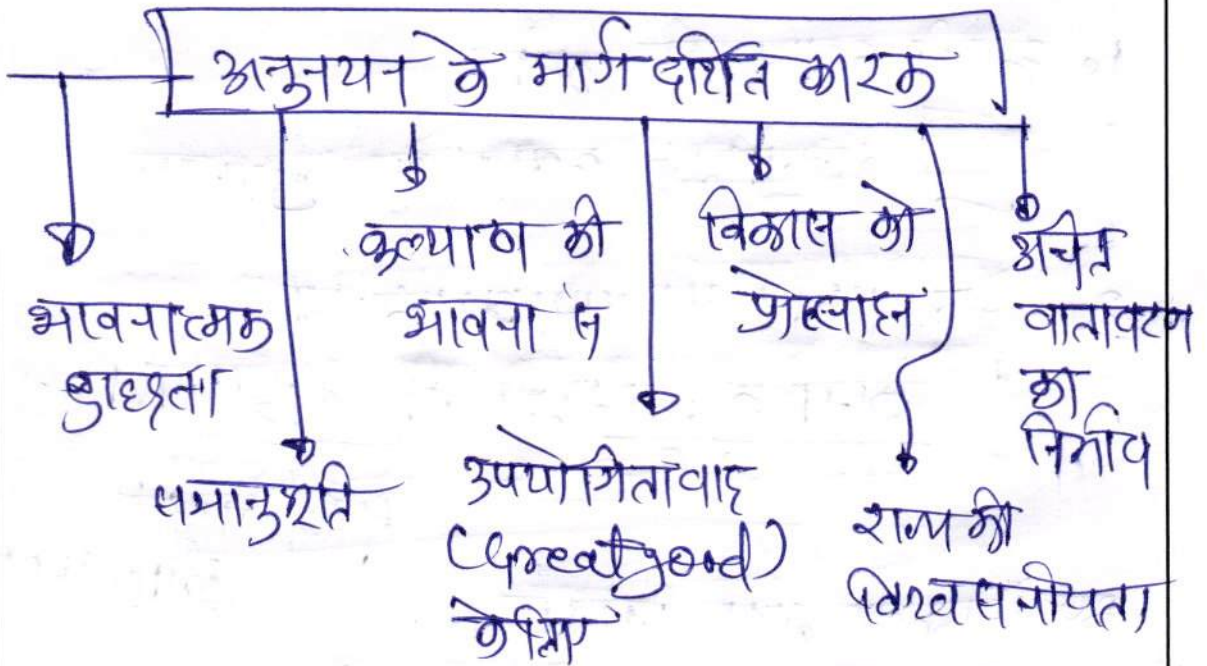 अनुनयन के मार्ग दर्शित कारक
भावनात्मक
समानुभूति
कल्याण की
भावना से
उपयोगितावाद
(Great good)
के लिए
विकास को
प्रोत्साहन
राज्य की
विश्वसनीयता
उचित
वातावरण
का
निर्माण